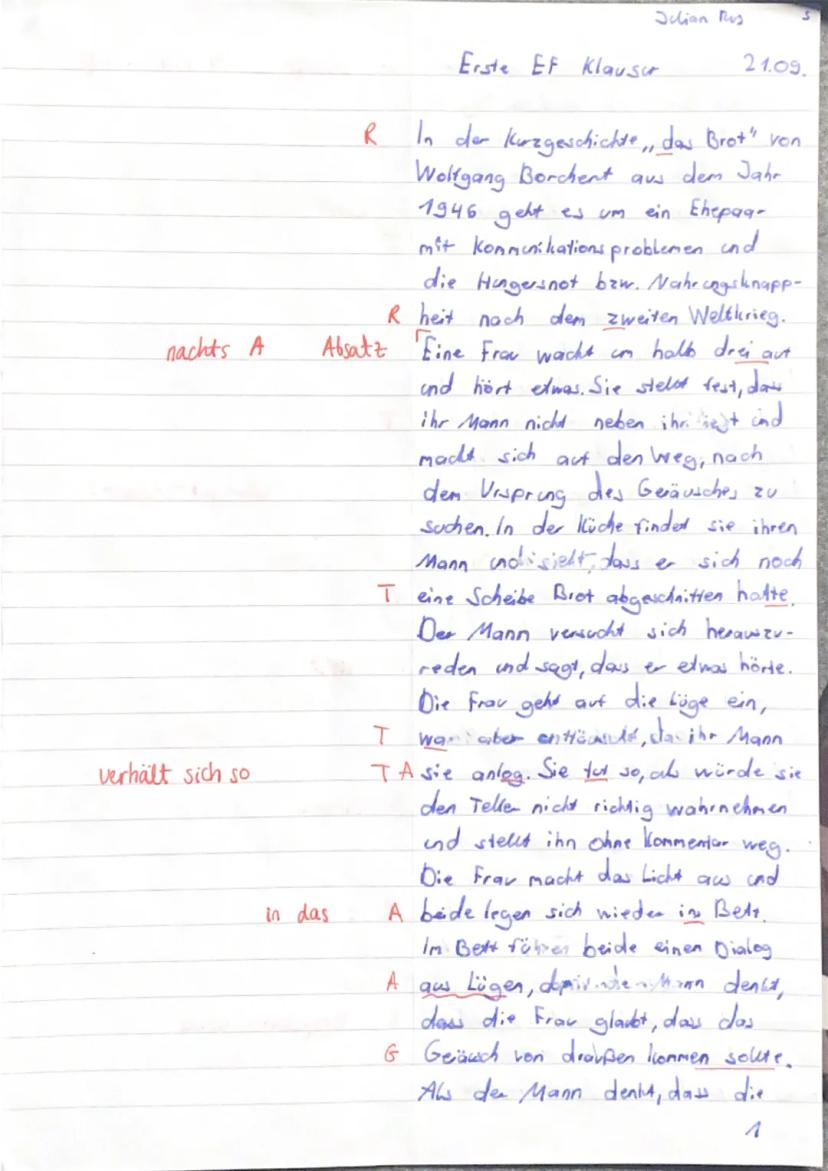 Julian Rus 5
Erste EF Klausur 21.09.
R In der Kurzgeschichte „das Brot" von
Wolfgang Borchert aus dem Jahr
1946 geht es um ein Ehepaar
mit Kommunikationsproblemen und
die Hungersnot bzw. Nahrungsknapp-
R heit nach dem zweiten Weltkrieg.
nachts A Absatz Eine Frau wacht um halb drei auf
und hört etwas. Sie stellt fest, dass
ihr Mann nicht neben ihr liegt und
macht sich auf den Weg, nach
dem Ursprung des Geräusches zu
suchen. In der Küche findet sie ihren
Mann und sieht, dass er sich noch
T eine Scheibe Brot abgeschnitten hatte.
Der Mann versucht sich herauszu-
reden und sagt, dass er etwas hörte.
Die Frau geht auf die Lüge ein,
T war aber enttäuscht, da ihr Mann
verhält sich so T A sie anlog. Sie tut so, als würde sie
den Teller nicht richtig wahrnehmen
und stellt ihn ohne Kommentar weg.
Die Frau macht das Licht aus und
in das A beide legen sich wieder in Bett.
Im Bett führen beide einen Dialog
A aus Lügen, damit der Mann denkt,
dass die Frau glaubt, dass das
G Geräusch von draußen kommen sollte.
Als der Mann denkt, dass die
1